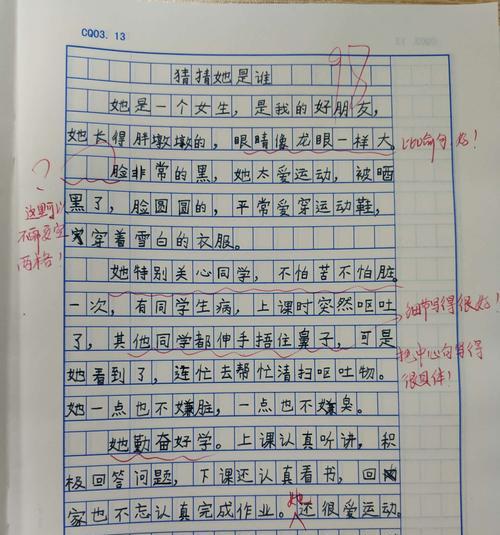 CQ03.13
猜猜她是谁
98
她是一个女生，是我的好朋友，
她长得胖墩墩的，眼睛像龙眼一样大，
比喻句，好！
脸非常的黑，她太爱运动，被晒
？
黑了，脸圆圆的，平常爱穿运动鞋，
这里可以
不需要空
两格！
穿着雪白的衣服。
她特别关心同学，不怕苦不怕脏，
一次，有同学生病，上课时突然呕吐
细节写得很好！
了，其他同学都伸手捂住鼻子，可是
把中心句写得
很具体！
她看到了，连忙去帮忙清扫呕吐物。
她一点也不嫌脏，一点也不嫌臭。
她勤奋好学。上课认真听讲，积
极回答问题，下课还认真看书，回
家也不忘认真完成作业。她还很爱运动。